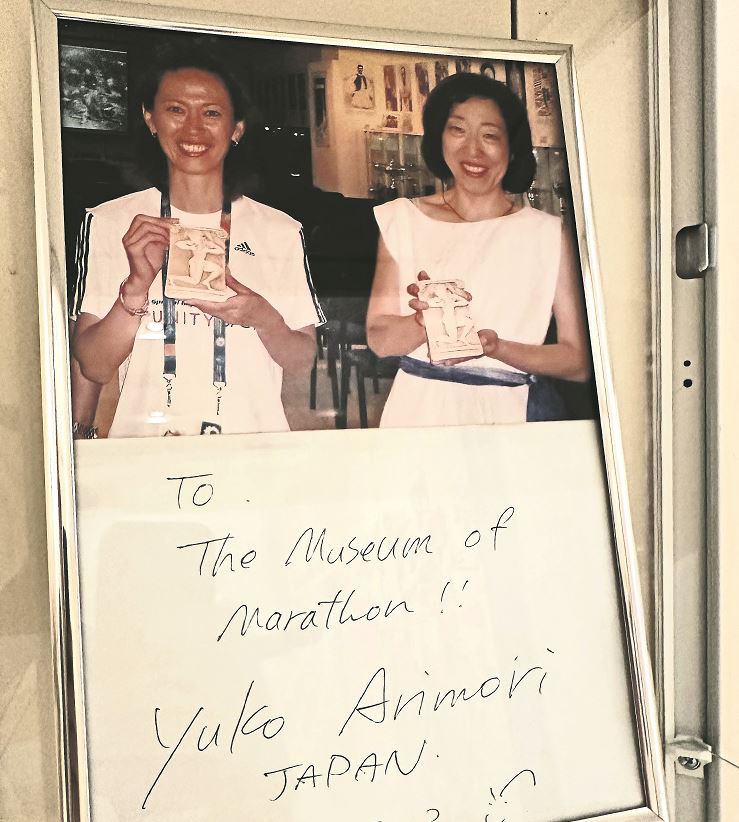 adidas
UNITY
To.
The Museum of
Marathon !!
Yuko Arimori
JAPAN.